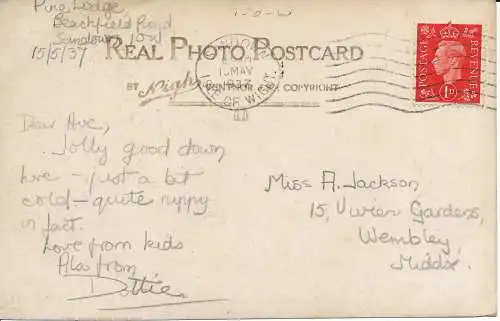 Pine Lodge,
Beachfield Road
Sandown IOW
15/5/37
I-O-W
REAL PHOTO POSTCARD
BY Nigh VENTNOR COPYRIGHT
15 MAY
ISLE OF WIGHT
POSTAGE REVENUE
1D
Dear Ave,
Jolly good down
here - just a bit
cold - quite nippy
in fact.
Love from kids
Also from
Dottie
Miss A. Jackson
15, Vivian Gardens,
Wembley,
Middx.